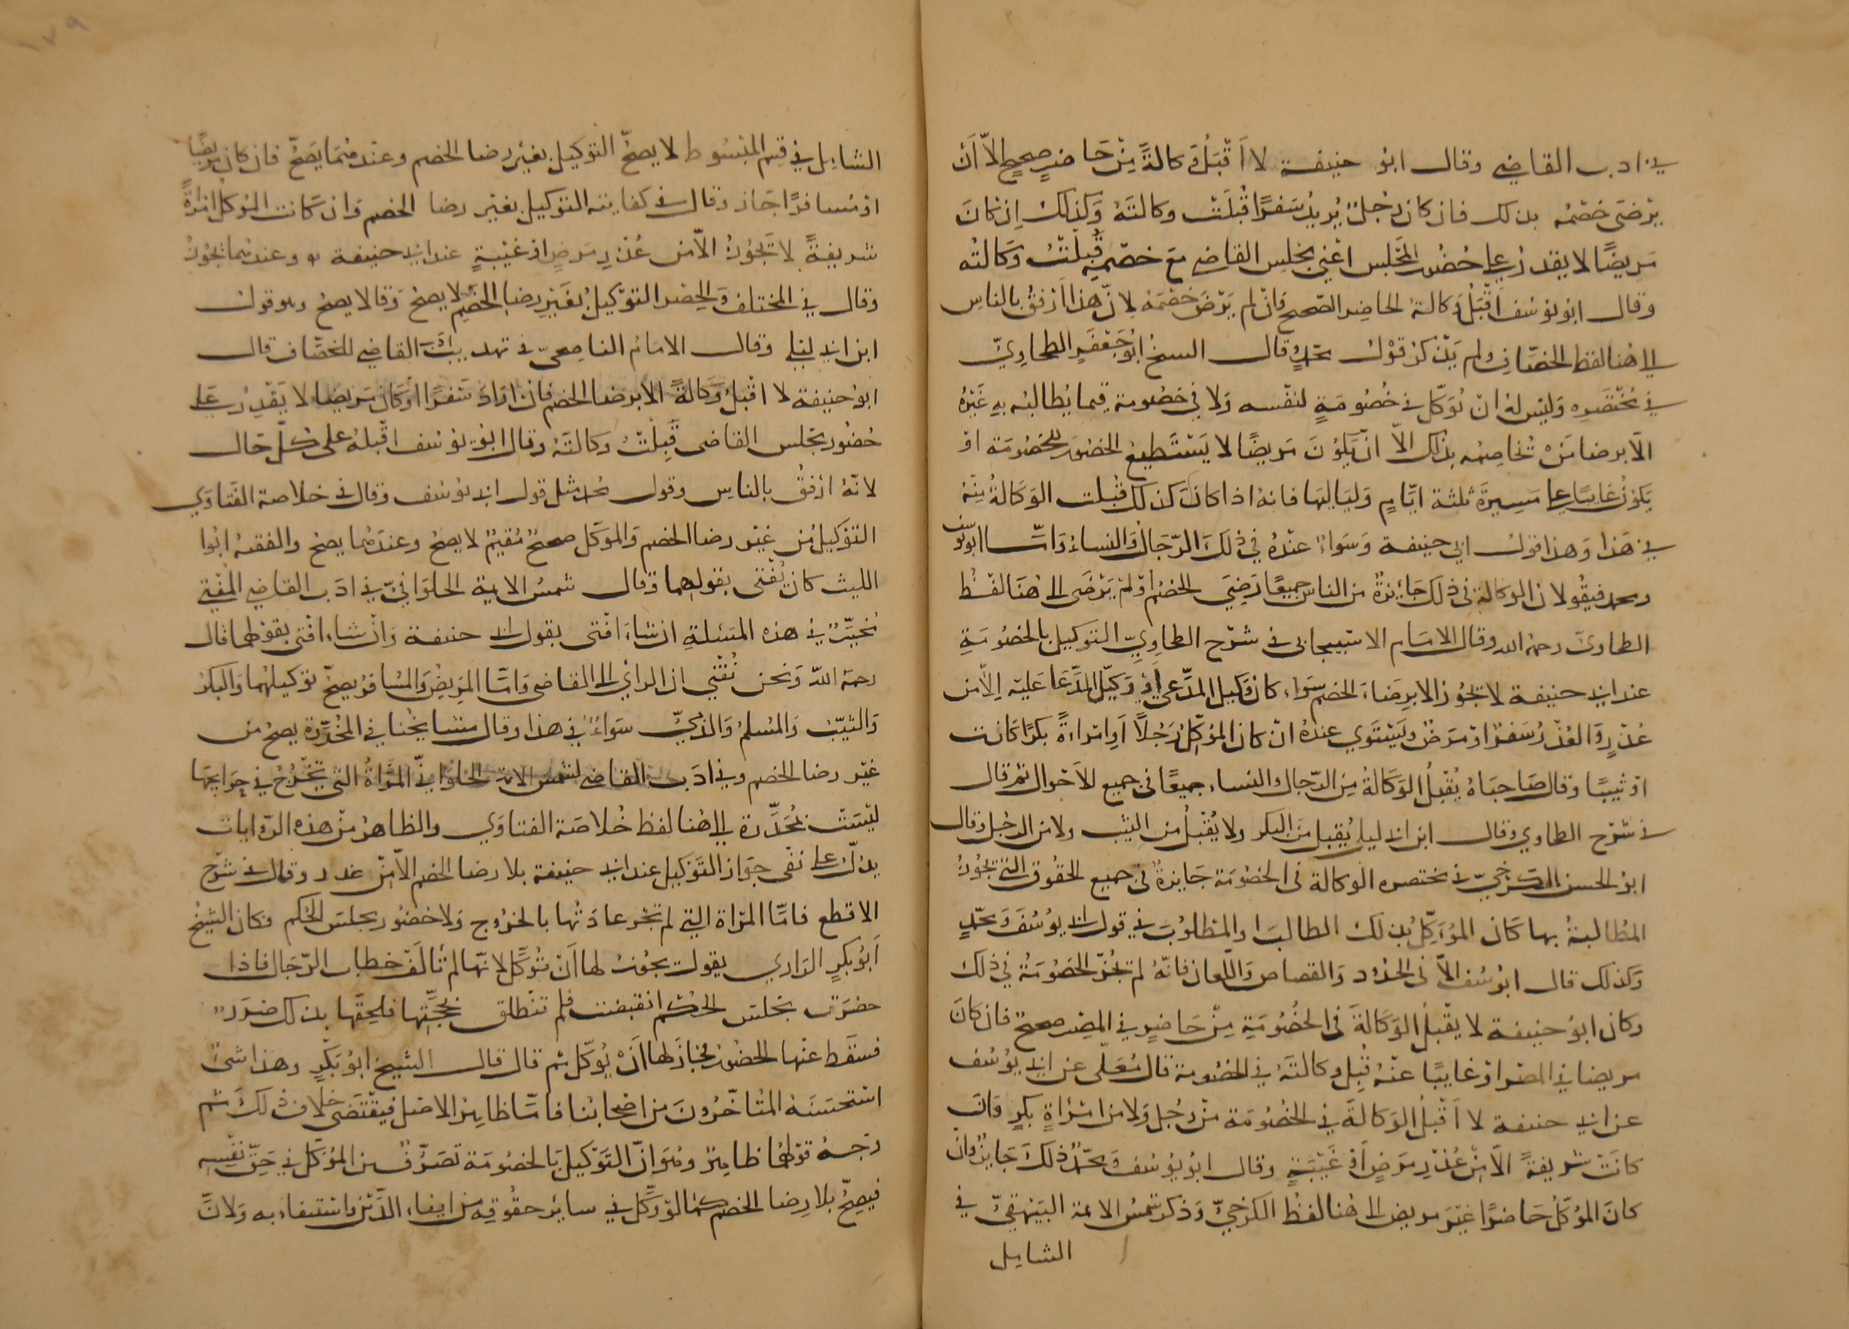 في ادب القاضي وقال ابو حنيفة لا اَقْبَلُ وَكالةً مِنْ حَاضرٍ صحيحٍ الاّ اَنْ
يرْضَى خصْمُه بذلك فان كان رجُلٌ يُريدُ سَفرًا قُبلَتْ وكالتَهُ وَكذلك اِنْ كانَ
مَريضًا لا يقدرُ على حُضُور المجلس اعْني مجلس القاضي مَعَ خصْمِهِ قُبلَتْ وَكَالتُه
وقال ابو يوسُف اَقْبَلُ وَكالة الحاضِر الصّحيح وَانْ لم يَرْضَ خصْمُهُ لانّ هَذا اَرْفقُ بالناسِ
الى هُنا لفظ الخصّاف ولم يَذْكرْ قوْلَ محمّدٍ وقال الشيخ ابو جَعْفَرٍ الطحاوِيّ
في مُخْتَصَرِه وَليْسَ لهُ انْ يُوَكّل في خُصُومَةٍ لنفْسه وَلا في خصُومة فيما يُطالبُه بهِ غَيْرُه
الّا برضا مَنْ يُخاصِمُه بذلك الاّ انْ يَكُونَ مَريضًا لا يَسْتَطيعُ الحضُورَ للخصُومَة اوْ
يَكوْنُ غايبًا على مَسِيرَة ثلثة ايّامٍ وَليَاليهَا فانهُ اذا كانَ كذلكَ قُبلت الوَكَالةُ مِنْهُ
في هَذا وَهذا قولُ ابي حنيفة وَسَواءٌ عنْدُه في ذلكَ الرّجَالُ وَالنساءُ وَامّا ابو يوسف
ومحمد فيقولان الوكالة في ذلك جَائزةٌ من الناس جميعًا رَضِيَ الخصْم اوْ لمْ يَرْضَى الى هُنَا لفْظ
الطحاويّ رحمهُ الله وقال الامَام الاسْبيجابي في شرْح الطحاوِيِّ التوكيل بالخصُومَةِ
عند ابي حنيفة لا يجُوز الا برضَاء الخصْم سَواء كانَ وَكيلَ المدَّعِي اوْ وَكيل المدَّعَا عَليْه اِلّا من
عُذْرٍ وَالعُذْرُ سَفرٌ اوْ مَرضٌ وَيَسْتَوي عندهُ ان كان المُوَكّلُ رَجُلاً اَوِ امْراَةً بكرًا كانت
اوْ ثيبًا وقال صَاحبَاهُ يُقْبلُ الوَكَالةُ مِنَ الرّجال والنساء جميعًا في جميع الاَحْوال ثم قال
في شرْح الطحاوي وقال ابن ابي ليلى يُقبل منَ البكر ولا يُقْبلُ منَ الثيّب ولا من الرجل وقال
ابوُ الحسن الكرْخِيّ في مختصره الوكالة في الخصُومَة جَايزةٌ في جميع الحقُوق التي تَجُوزُ
المُطالبةُ بها كَان المُوَكِّلُ بذلك الطالبَ او المطلوُبَ في قول ابي يوُسُفَ وَمحمّدٍ
وَكذلك قال ابوُ يوسُف الاّ في الحدُود وَالقصاص وَاللّعان فانّهُ لم تجُزِ الخصُومَةُ في ذلك
وكان ابوُ حنيفة لا يقْبلُ الوَكالةَ في الخصُومَةِ مِنْ حَاضِرٍ في المِصْر صحيح فان كانَ
مريضا في المصْر اوْ غايبًا عنْهُ قُبلَ وكالتَهُ في الخصُومة قال مُعَلّى عن ابي يوُسُف
عن ابي حنيفة لا اَقْبلُ الوَكالةَ في الخُصُومَة منْ رجُلٍ وَلا من امْراَةٍ بكرٍ وَانْ
كانَتْ شريفةً الّا مِنْ عُذْرِ مَرَضٍ اَوْ غَيْبَةٍ وقال ابو يوُسُف وَمحمّدٌ ذلكَ جَايزٌ وانْ
كانَ المُوَكّلُ حَاضرًا غيْرَ مريض الى هُنا لفظُ الكرْخِيّ وَذكر شمسُ الائمة البَيْهَقِيّ في
الشامل
الشامل في قسم المبْسُوط لا يصحّ التوكيل بغيْر رضا الخصم وعندهمَا يَصحُّ فان كان مريضًا
اوْ مُسافرًا جَاز وقال في كفايته التوكيل بغيْر رضا الخصم وَان كَانت المُوكّل امْراةً
شريفةً لا يَجُوزُ الّا من عُذْرِ مَرَضٍ اوْ غَيْبَةٍ عند ابي حنيفة وعندهُما يَجُوزُ
وقال في المختلف وَالحصْر التوْكيلُ بغَيْرِ رضا الخصْم لا يصحُّ وَقالا يصحُّ وهو قول
ابن ابي ليْلى وقال الامَام الناصِحيّ في تهذيب ادب القاضي للخصّاف قال
ابوُ حنيفة لا اقْبلُ وَكَالةً الّا برضا الخصم فان ارَادَ سَفرًا اوْ كانَ مَريضًا لا يَقْدِرُ على
حُضُور مجلس القاضى قُبِلَتْ وكالتَهُ وقال ابوُ يوُسُف اقْبلهُ على كلّ حَال
لانّهُ ارْفقُ بالناس وقول محمد مثل قول ابي يوُسُف وقال في خلاصة الفَتاوَي
التوْكيلُ من غيْر رضا الخصْم وَالموكّل صحيحٌ مُقيمٌ لا يصحُ وعندَهُما يصحُ والفقيهُ ابوُا
الليث كان يُفْتى بقولهما وقال شمسُ الائمة الحلوَانيّ في ادَب القاضي المُفْتي
مخيّرٌ في هذه المَسْئلةِ ان شاءَ افْتى بقول ابي حنيفة وَانْ شاءَ افْتى بقوْلهما قال
رحمهُ اللهُ وَنحن نُفْتي ان الرّاْيَ الى القاضى وَامّا المَريضُ وَالمُسَافرُ يصحّ توْكيلهُما وَالبكرُ
وَالثيّبُ وَالمُسلمُ وَالذّمّيُّ سَوَاءٌ في هذا وقال مشايخُنا في المُخدّرَة يصحُ من
غيْر رضا الخصم وفي ادَب القاضى لشمس الائمّة الحلوَانيّ المَرْاَةُ التي تَخْرُجُ في حَوَايجهَا
ليْسَتْ بمُخدَّرَة الى هُنا لفظ خُلاصَة الفتاوَي والظاهرُ منْ هذه الرّوايات
يدلّ على نفْى جوَاز التَوْكيل عند ابي حنيفة بلا رضا الخصْم الّا منْ عذر وقال في شرْح
الاقطع فامّا المرْاة التي لم تجْرِ عادَتُها بالخرُوج وَلا حُضُورِ مجلسِ الحُكم فكان الشيخُ
اَبوُ بكرٍ الرّازي يقول يجُوز لها اَنْ تُوَكِّلَ لانّها لم تاْلَفْ خطاب الرّجَال فاذا
حضرَتْ مجلسَ الحكمِ انقبضت فلم تنْطلق بحجّتِها فلحقَها بذلك ضررٌ
فسَقَط عنْها الحضُورُ فجازَ لها اَنْ يُوَكّل ثم قال قال الشيخ ابوُ بَكْرٍ وهذا شئٌ
اسْتحسَنهُ المُتَأخّرُونَ من اصْحابنا فامّا ظاهرُ الاصْل فيَقْتَضى خلَافَ ذلكَ ثم
وَجهُ قوْلهما ظاهرٌ وهُوَ اَنّ التَوْكيلَ بالخصُومَة تَصَرُّفٌ من المُوَكّلِ في حَقّ نفْسِه
فيَصِحُّ بلا رِضا الخصْم كما لوْ وَكّلَ في سائر حقُوقِهِ من ايفاء الدَّيْن وَاسْتيفاءه بهِ وَلانَّ